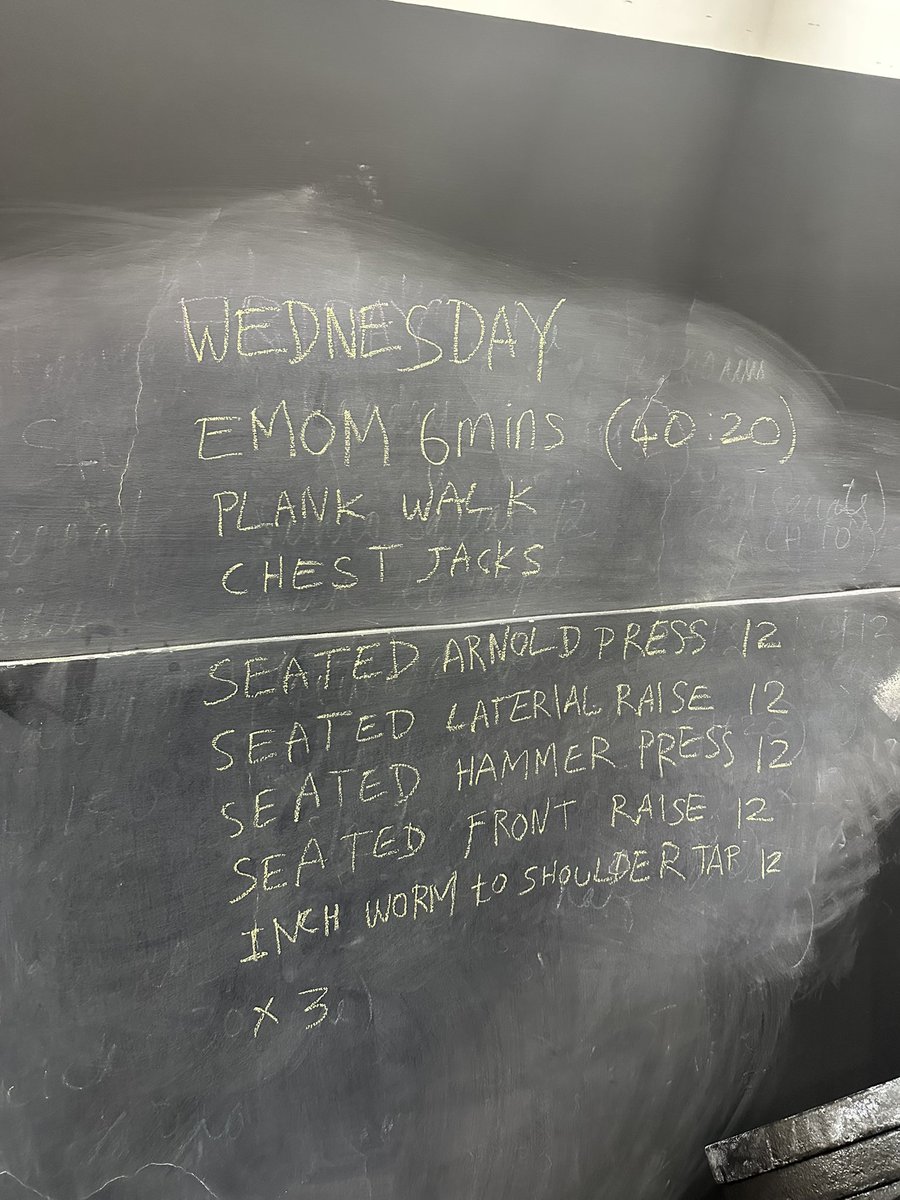 WEDNESDAY
EMOM 6mins (40:20)
PLANK WALK
CHEST JACKS
SEATED ARNOLD PRESS 12
SEATED LATERIAL RAISE 12
SEATED HAMMER PRESS 12
SEATED FRONT RAISE 12
INCH WORM to SHOULDER TAP 12
x 3